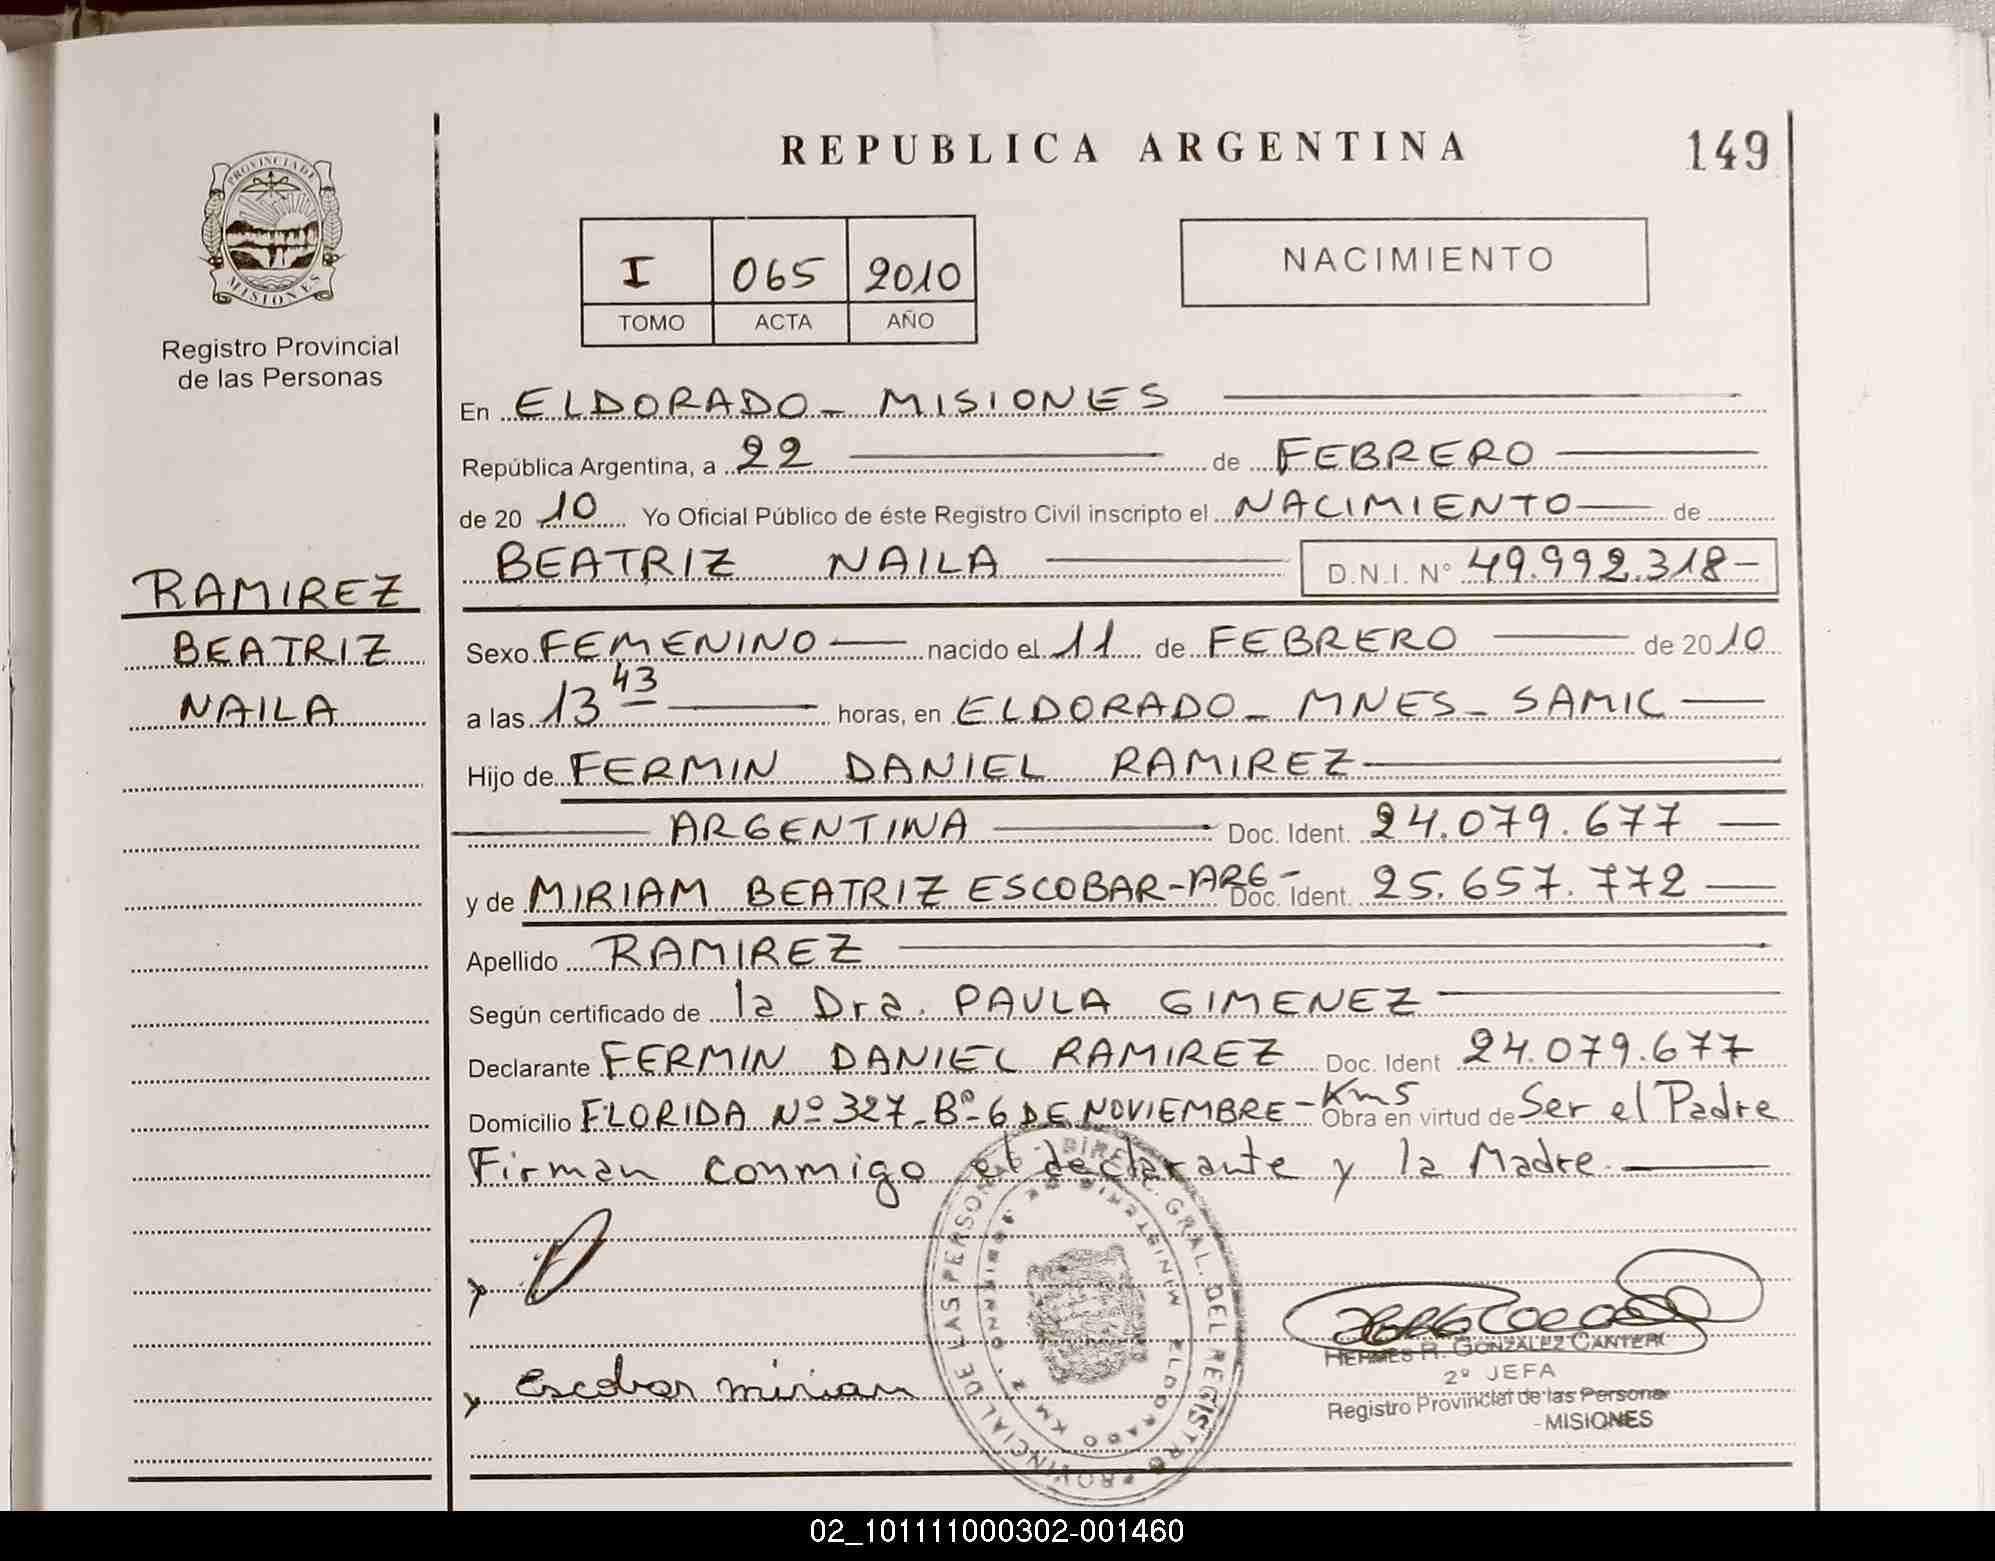 REPUBLICA ARGENTINA
149
PROVINCIA DE
MISIONES
Registro Provincial
de las Personas
I 065 2010
TOMO ACTA AÑO
NACIMIENTO
En ELDORADO - MISIONES
República Argentina, a 22 de FEBRERO
de 20 10 Yo Oficial Público de éste Registro Civil inscripto el NACIMIENTO de
BEATRIZ NAILA D.N.I. N° 49.992.318-
RAMIREZ
BEATRIZ
NAILA
Sexo FEMENINO nacido el 11 de FEBRERO de 2010
a las 13 43 horas, en ELDORADO - MNES - SAMIC
Hijo de FERMIN DANIEL RAMIREZ
ARGENTINA Doc. Ident. 24.079.677
y de MIRIAM BEATRIZ ESCOBAR-ARG- Doc. Ident. 25.657.772
Apellido RAMIREZ
Según certificado de la Dra. PAULA GIMENEZ
Declarante FERMIN DANIEL RAMIREZ Doc. Ident 24.079.677
Domicilio FLORIDA Nº 327 - Bº - 6 DE NOVIEMBRE - Km 5 Obra en virtud de Ser el Padre
Firman conmigo el declarante y la Madre.
Escobar mirian
HERMES R. GONZALEZ CANTERO
2º JEFA
Registro Provincial de las Persona
-MISIONES
02_101111000302-001460